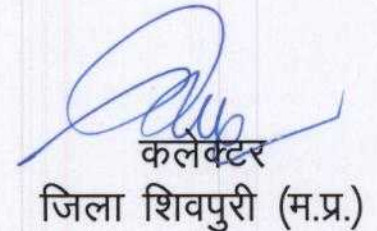 कलेक्टर
जिला शिवपुरी (म.प्र.)